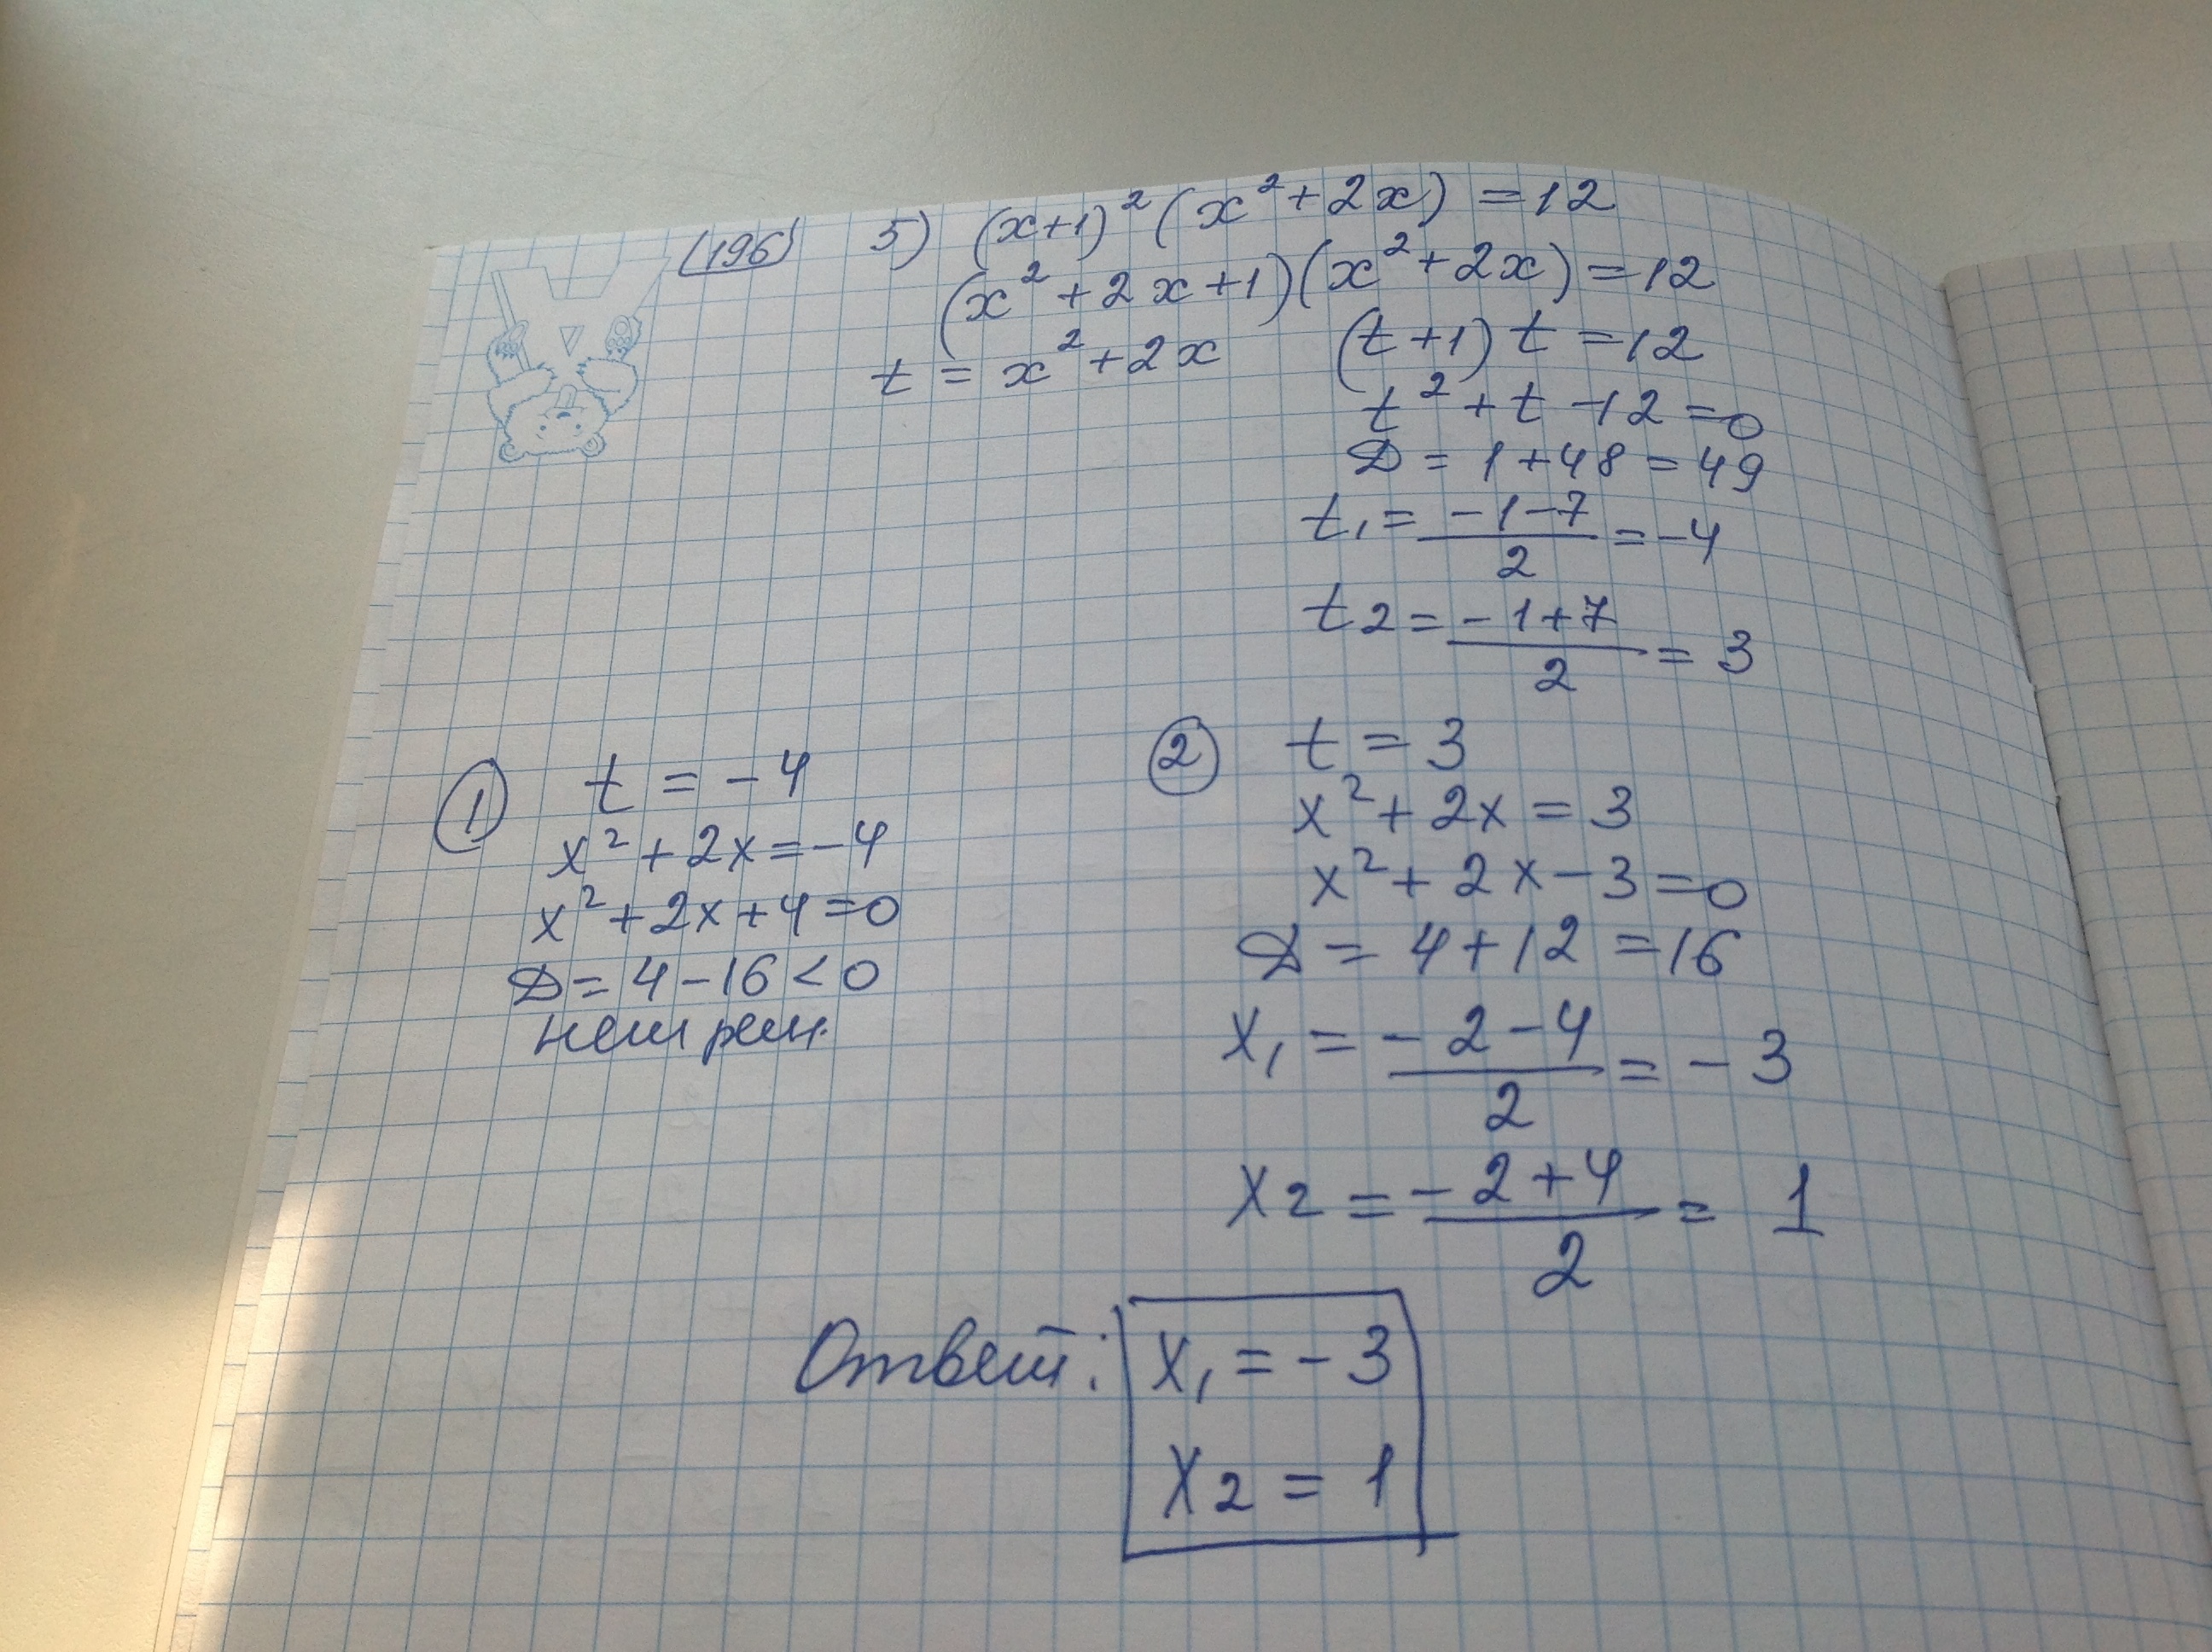 (196) 5) (x+1)² (x²+2x) = 12
(x²+2x+1)(x²+2x) = 12
t = x²+2x (t+1) t = 12
t²+t-12=0
D = 1+48 = 49
t₁ = (-1-7)/2 = -4
t₂ = (-1+7)/2 = 3
① t = -4
x²+2x=-4
x²+2x+4=0
D=4-16<0
нет реш.
② t = 3
x²+2x = 3
x²+2x-3=0
D = 4+12 = 16
x₁ = (-2-4)/2 = -3
x₂ = (-2+4)/2 = 1
Ответ: x₁ = -3
x₂ = 1